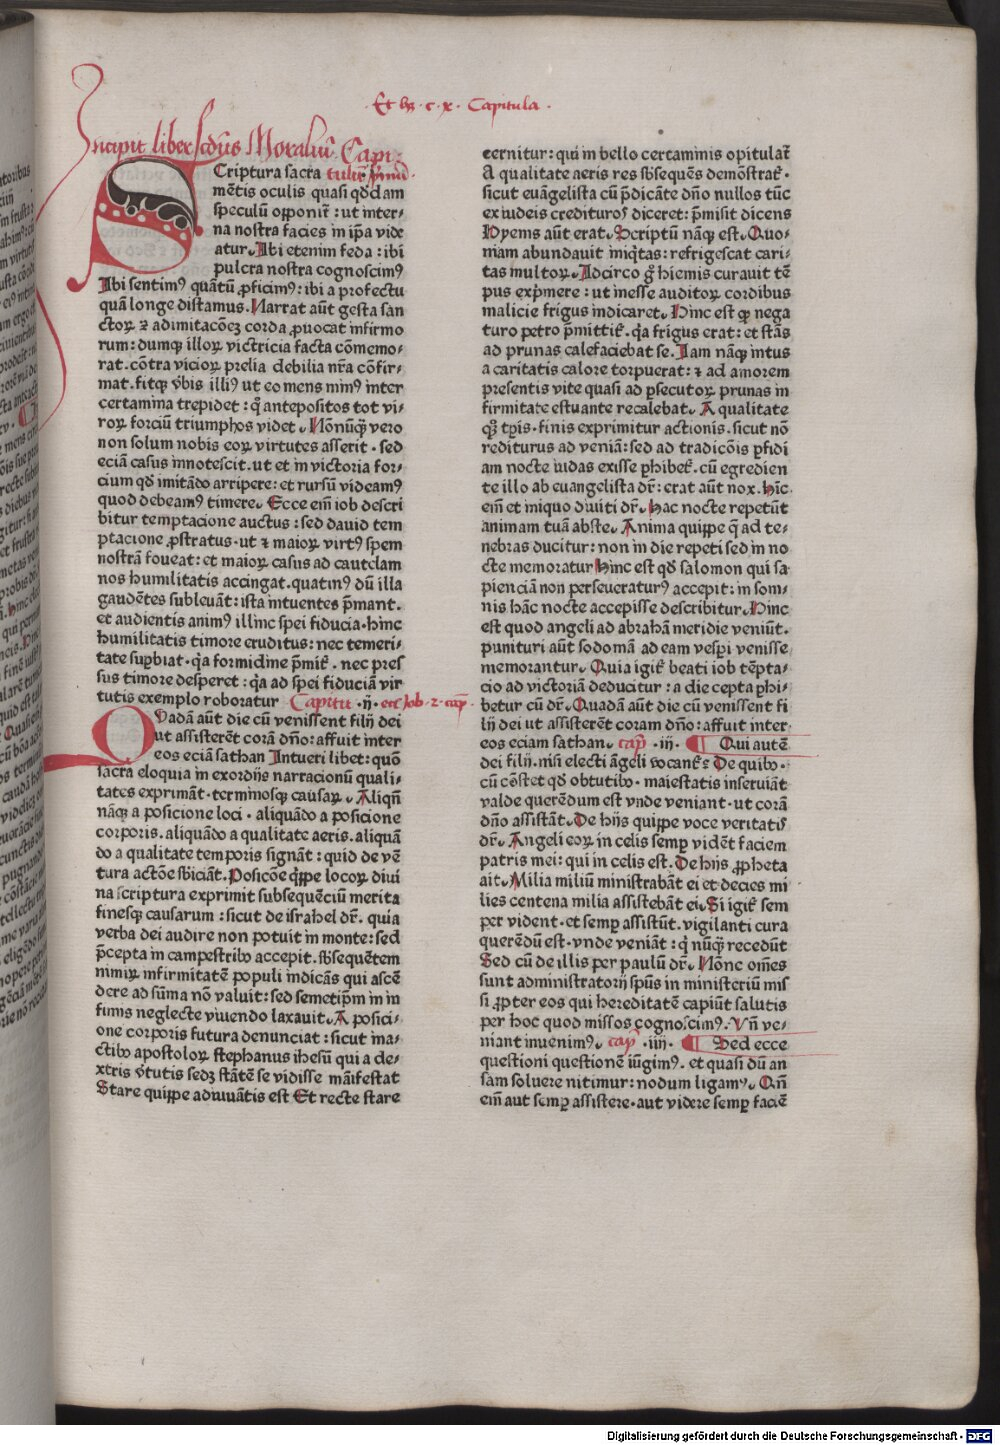 · Et hʒ · c · x · Capitula ·
Incipit liber scd̄us Moraliū Capi-
Criptura sacra tulū p̄imū·
mētis oculis quasi qd̄dam
speculū opponit᷑ : ut inter-
na nostra facies in ip̄a vide
atur. Ibi etenim feda : ibi
pulcra nostra cognoscimꝰ
Ibi sentimꝰ quātū ꝓficimꝰ: ibi a profectu
quā longe distamus. Narrat aūt gesta san
ctoꝝ ⁊ ad imitacōeʒ corda ꝓuocat infirmo
rum: dumqꝫ illoꝝ victricia facta cōmemo-
rat. cōtra vicioꝝ prelia debilia nr̄a cōfir-
mat. fitqꝫ v̄bis illiꝰ ut eo mens minꝰ inter
certamina trepidet : q̄ ante positos tot vi-
roꝝ forciū triumphos videt. Nōnūqꝫ vero
non solum nobis eoꝝ virtutes asserit · sed
eciā casus innotescit. ut et in victoria for-
cium qd̄ imitādo arripere: et rursū videamꝰ
quod debeamꝰ timere. Ecce eīm iob descri
bitur temptacione auctus : sed dauid tem
ptacione ꝓstratus · ut ⁊ maioꝝ virtꝰ spem
nostrā foueat: et maioꝝ casus ad cautelam
nos humilitatis accingat. quatinꝰ dū illa
gaudētes subleuāt: ista intuentes p̄mant.
et audientis animꝰ illinc spei fiducia · hinc
humilitatis timore eruditus : nec temeri-
tate suꝑbiat · q̄a formidine p̄mit᷑. nec pres
sus timore desperet : q̄a ad spei fiduciā vir
tutis exemplo roboratur Capitu · ij · ecc̄ Job · 2 · cap̄
Uadā aūt die cū venissent filij dei
ut assisterēt corā dn̄o: affuit inter
eos eciā sathan Intueri libet: quō
sacra eloquia in exordijs narracionū quali-
tates exprimāt · terminosqꝫ causaꝝ. Aliqn̄
nāqꝫ a posicione loci · aliquādo a posicione
corporis. aliquādo a qualitate aeris. aliquā
do a qualitate temporis signāt : quid de vē
tura actōe sb̄iciāt. Posicōe q̄ppe locoꝝ diui
na scriptura exprimit subsequēciū merita
finesqꝫ causarum : sicut de israhel dr̄. quia
verba dei audire non potuit in monte: sed
p̄cepta in campestribꝰ accepit. sb̄sequētem
nimiꝝ infirmitatē populi indicās qui ascē
dere ad sūma nō valuit: sed semetip̄m in in
fimis neglecte viuendo laxauit. A posici-
one corporis futura denunciat : sicut in a-
ctibꝰ apostoloꝝ stephanus ihesū qui a de-
xtris v̄tutis sedʒ stātē se vidisse māifestat
Stare quippe adiuuātis est Et recte stare
cernitur: qui in bello certaminis opitulat᷑
A qualitate aeris res sb̄sequēs demōstrat᷑ ·
sicut euāgelista cū p̄dicāte dn̄o nullos tūc
ex iudeis credituros diceret: p̄misit dicens
Hyems aūt erat. Scriptū nāqꝫ est. Quo-
niam abundauit iniq̄tas: refrigescat cari-
tas multoꝝ. Idcirco g̊ hiemis curauit tē
pus exp̄mere : ut inesse auditoꝝ cordibus
malicie frigus indicaret. Hinc est qꝫ nega
turo petro p̄mittit᷑. q̄a frigus erat: et stās
ad prunas calefaciebat se. Iam nāqꝫ intus
a caritatis calore torpuerat: ⁊ ad amorem
presentis vite quasi ad ꝑsecutoꝝ prunas in
firmitate estuante recalebat. A qualitate
qꝫ tp̄is · finis exprimitur actionis. sicut nō
rediturus ad veniā: sed ad tradicōis ꝑfidi
am nocte iudas exisse ꝑhibet᷑. cū egredien
te illo ab euangelista dr̄: erat aūt nox. hīc
eīm et iniquo diuiti dr̄. hac nocte repetūt
animam tuā abs te. Anima quippe q̄ ad te-
nebras ducitur: non in die repeti sed in no
cte memoratur Hinc est qd̄ salomon qui sa
pienciā non perseueraturꝰ accepit: in som-
nis hāc nocte accepisse describitur. Hinc
est quod angeli ad abrahā meridie veniūt.
punituri aūt sodomā ad eam vesꝑi venisse
memorantur. Quia igit᷑ beati iob tēpta-
cio ad victoriā deducitur : a die cepta ꝑhi-
betur cū dr̄. Quadā aūt die cū venissent fi
lij dei ut assisterēt coram dn̄o: affuit inter
eos eciam sathan. cap̄ · iij · Qui autē
dei filij. nisi electi āgeli vocant᷑s De quibꝰ ·
cū cōstet qd̄ obtutibꝰ · maiestatis inseruiāt
valde querēdum est vnde veniant · ut corā
dn̄o assistāt. De hijs quippe voce veritatis
dr̄. Angeli eoꝝ in celis semꝑ vidēt faciem
patris mei: qui in celis est. De hijs ꝓpheta
ait. Milia miliū ministrabāt ei et decies mi
lies centena milia assistebāt ei. Si igit᷑ sem
per vident · et semꝑ assistūt. vigilanti cura
querēdū est · vnde veniāt : q̄ nūqꝫ recedūt
Sed cū de illis per paulū dr̄. Nōnc om̄es
sunt administratorij spūs in ministeriū mis
si ꝓpter eos qui hereditatē capiūt salutis
per hoc quod missos cognoscimꝰ. Vn̄ ve-
niant inuenimꝰ. cap̄ · iiij · Sed ecce
questioni questionē iūgimꝰ. et quasi dū an
sam soluere nitimur: nodum ligamꝰ. Qn̄
eīm aut semꝑ assistere · aut videre semꝑ faciē
Digitalisierung gefördert durch die Deutsche Forschungsgemeinschaft - DFG